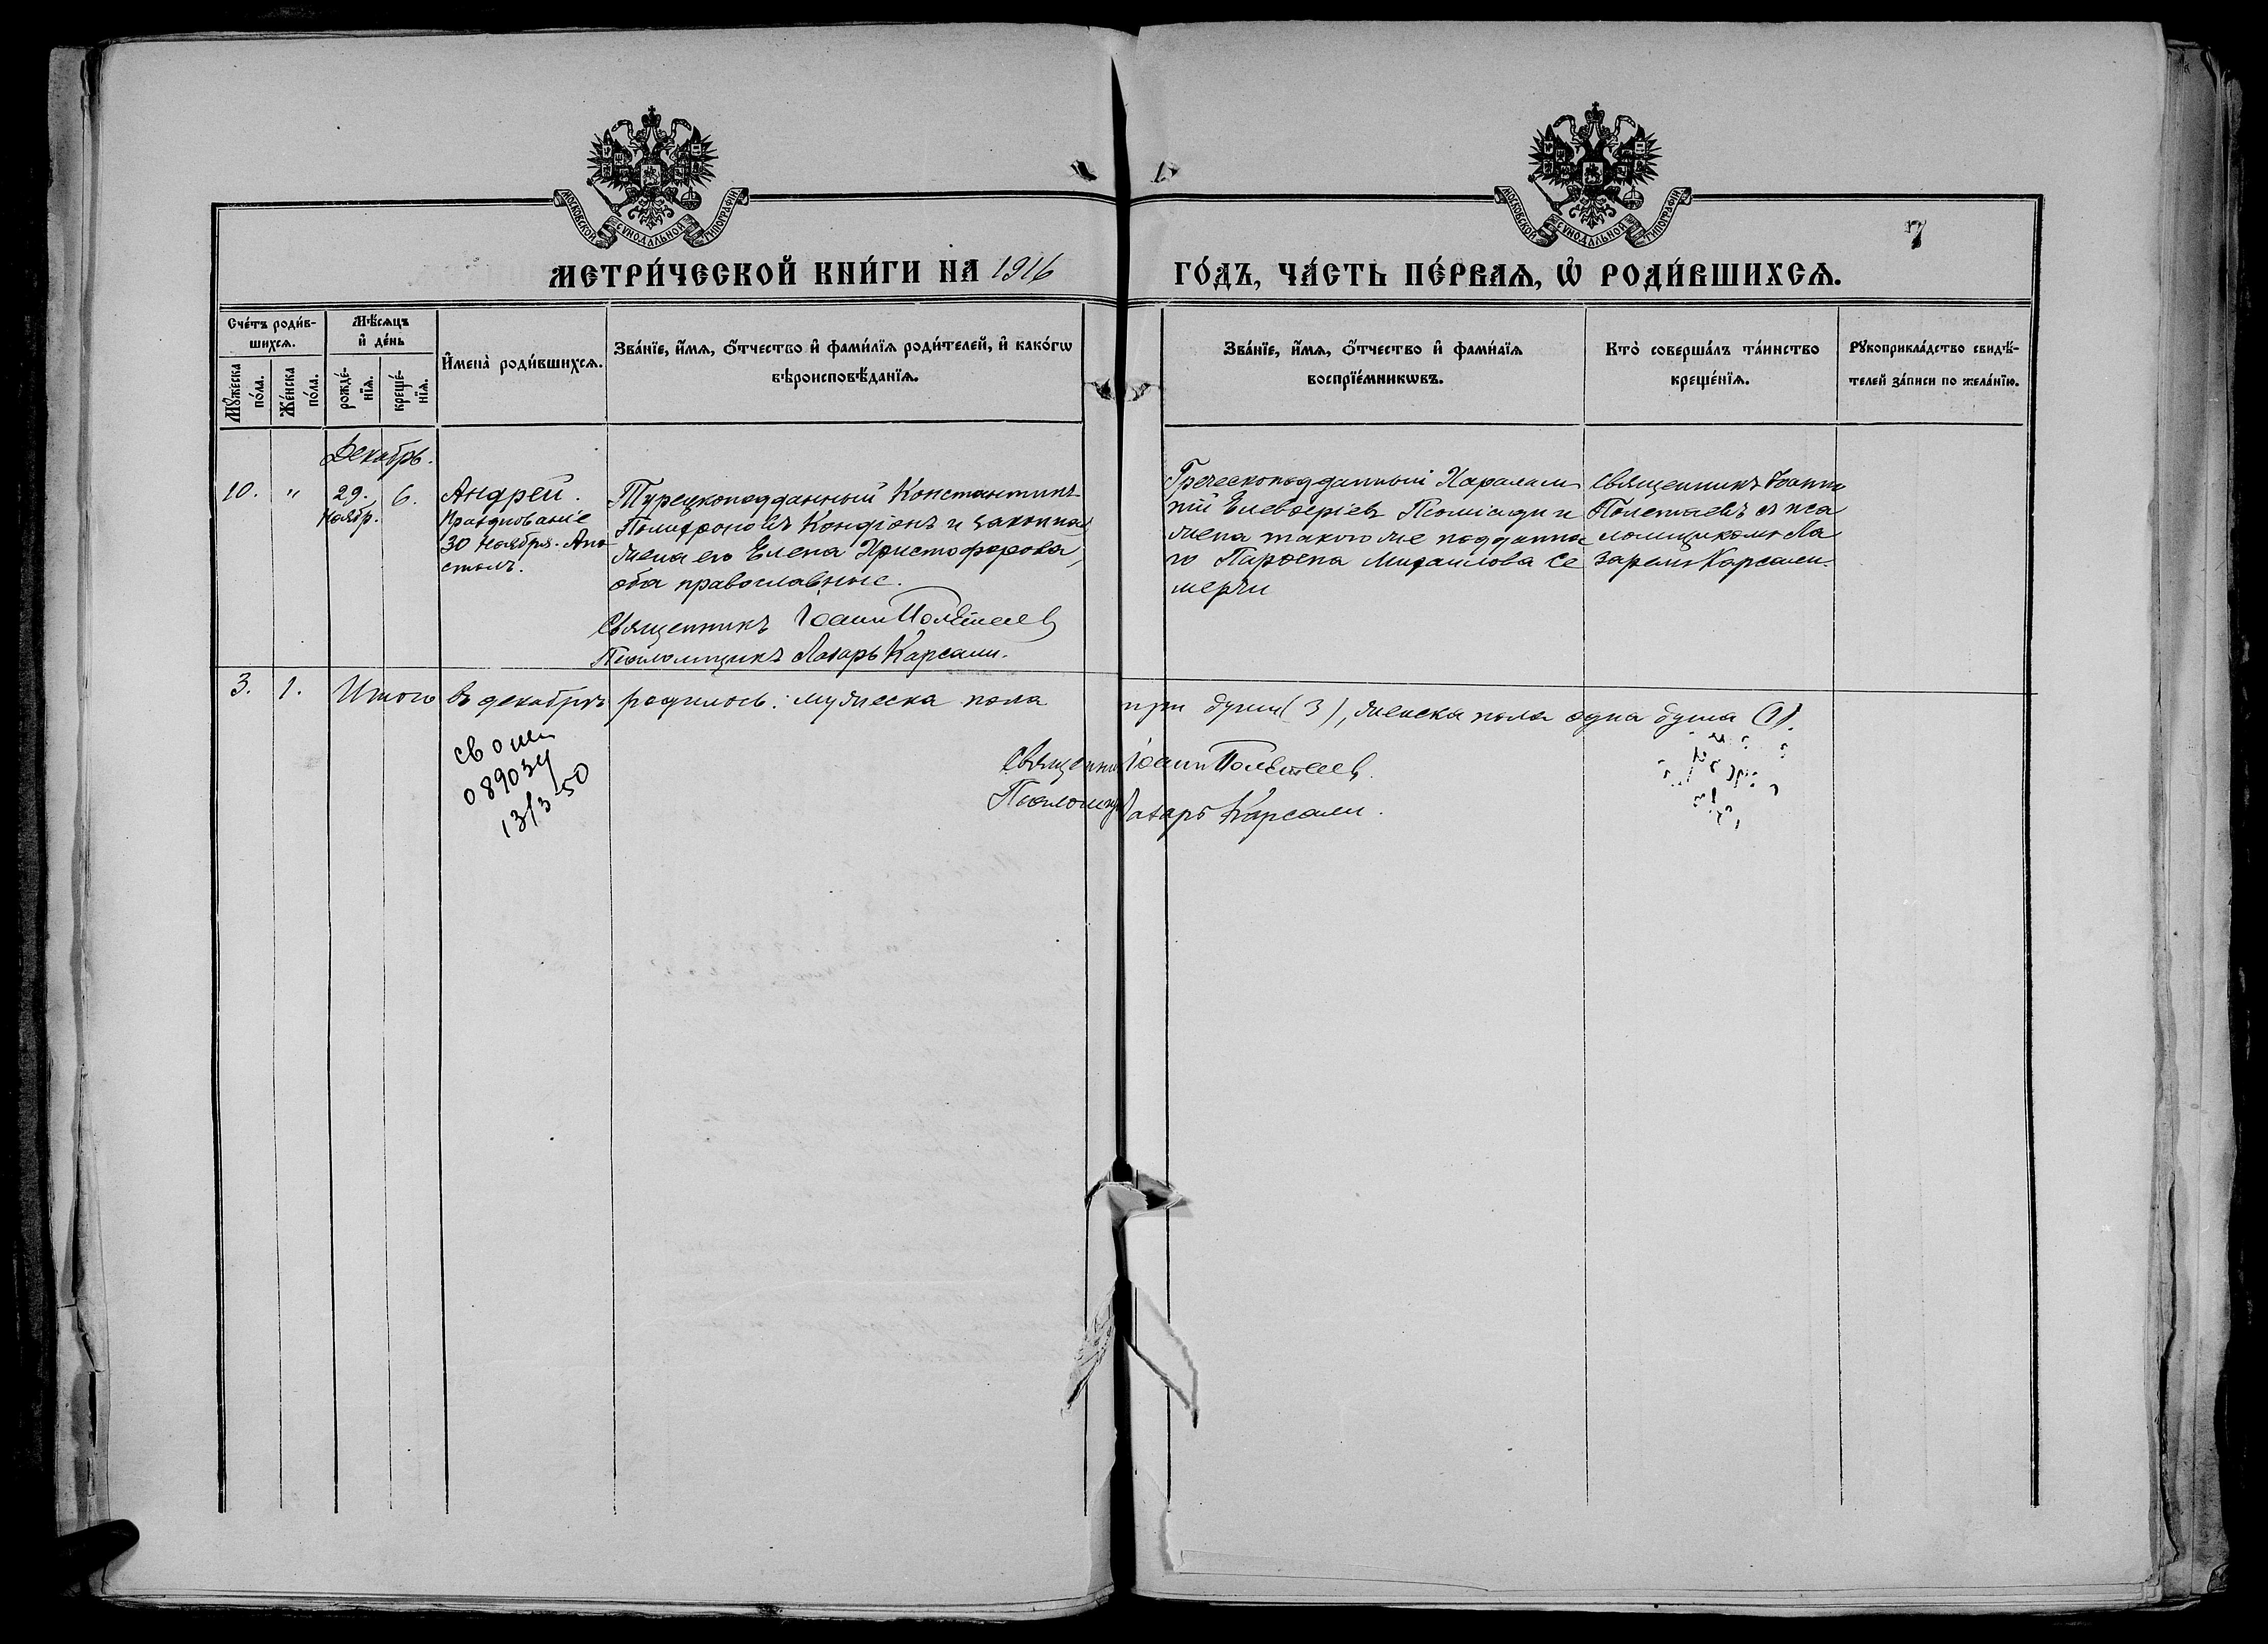 МОСКОВСКОЙ СУНОДАЛЬНОЙ ТИПОГРАФІИ
МОСКОВСКОЙ СУНОДАЛЬНОЙ ТИПОГРАФІИ
7
МЕТРИ́ЧЕСКОЙ КНИ́ГИ НА 1916
ГО́ДЪ, ЧА́СТЬ ПЕ́РВАѦ, Ѡ҆ РОДИ́ВШИХСѦ.
Сче́тъ роди́в-
шихсѧ.
Мꙋ́жеска по́ла.
Же́нска по́ла.
Мѣ́сѧцъ
и҆ де́нь
рожде́-нїѧ.
креще́-нїѧ.
И҆мена̀ роди́вшихсѧ.
Зва́нїе, и҆́мѧ, ѻ҆́тчество и҆ фами́лїѧ роди́телей, и҆ како́гѡ
вѣроисповѣ́данїѧ.
Зва́нїе, и҆́мѧ, ѻ҆́тчество и҆ фами́лїѧ
воспрїе́мникѡвъ.
Кто̀ соверша́лъ та́инство
креще́нїѧ.
Рꙋкоприкла́дство свидѣ́-
телей за́писи по жела́нїю.
Декабрь.
10. " 29. Ноябр. 6.
Андрей.
Празднованіе
30 Ноября. Апо
столъ.
Турецкоподданный Константинъ
Полихроновъ Кондіонъ и законная
жена его Елена Христофорова,
оба православные.
Священникъ Іоаннъ Полетаевъ
Псаломщикъ Лазарь Карсали.
Греческоподданный Харалам
пій Елевѳеріевъ и
жена такого же поддана
го Парѳена Михаилова Се
мерчи
Священникъ Іоаннъ
Полетаевъ съ пса
ломщикомъ Ла
заремъ Карсали.
3. 1. Итого въ декабрѣ родилось: мужеска пола три души (3), женска пола одна душа (1).
Священникъ Іоаннъ Полетаевъ.
Псаломщикъ Лазарь Карсали.
089034
13/3 50